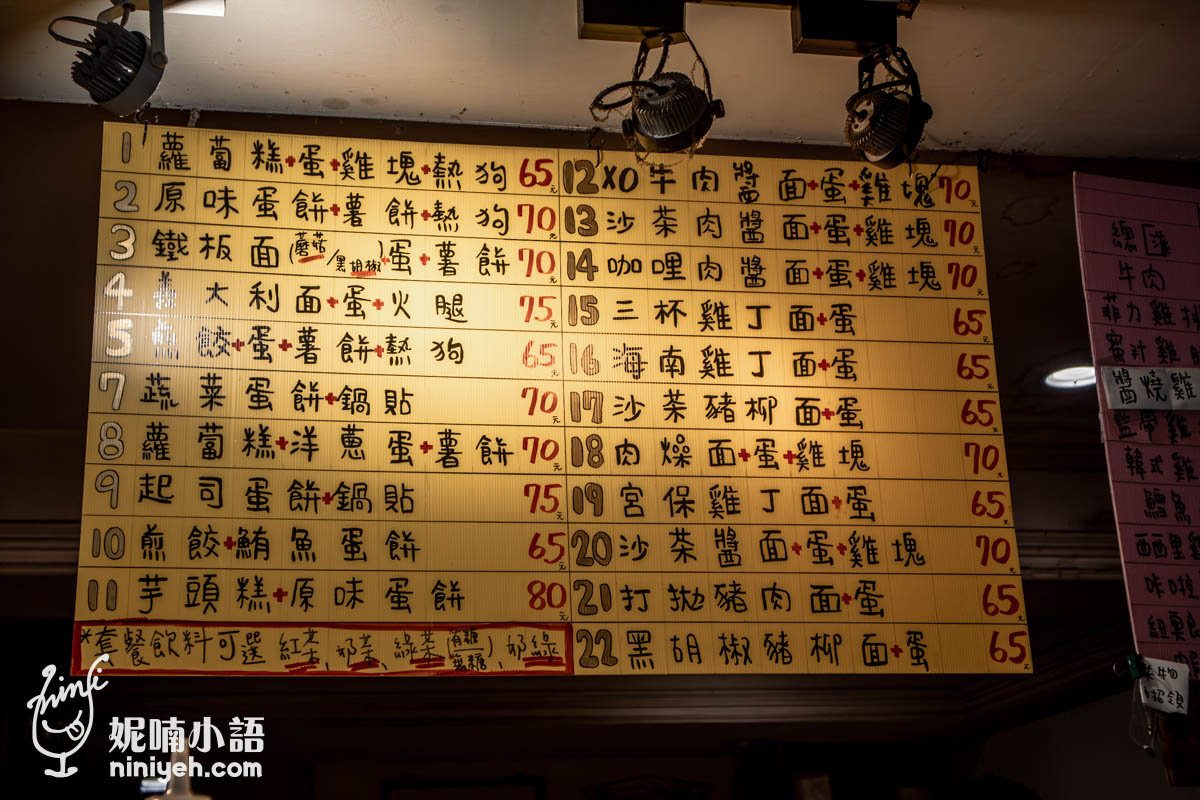 1 蘿蔔糕+蛋+雞塊+熱狗 65元
2 原味蛋餅+薯餅+熱狗 70元
3 鐵板面(蘑菇/黑胡椒)+蛋+薯餅 70元
4 義大利面+蛋+火腿 75元
5 煎餃+蛋+薯餅+熱狗 65元
7 蔬菜蛋餅+鍋貼 70元
8 蘿蔔糕+洋蔥蛋+薯餅 70元
9 起司蛋餅+鍋貼 75元
10 煎餃+鮪魚蛋餅 65元
11 芋頭糕+原味蛋餅 80元
*套餐飲料可選紅茶、奶茶、綠茶(有糖/無糖)、奶綠
12 XO牛肉醬面+蛋+雞塊 70元
13 沙茶肉醬面+蛋+雞塊 70元
14 咖哩肉醬面+蛋+雞塊 70元
15 三杯雞丁面+蛋 65元
16 海南雞丁面+蛋 65元
17 沙茶豬柳面+蛋 65元
18 肉燥面+蛋+雞塊 70元
19 宮保雞丁面+蛋 65元
20 沙茶醬面+蛋+雞塊 70元
21 打拋豬肉面+蛋 65元
22 黑胡椒豬柳面+蛋 65元
總匯
牛肉
菲力雞排
蜜汁雞
醬燒雞
藍帶雞
韓式雞
鱈魚
西西里雞
咔啦
紐奧
失物招領
nini
妮喃小語
niniyeh.com